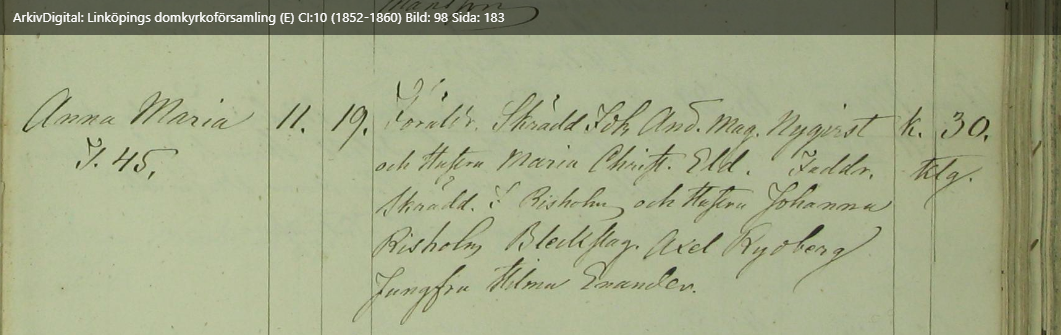 ArkivDigital: Linköpings domkyrkoförsamling (E) CI:10 (1852-1860) Bild: 98 Sida: 183
Anna Maria 11. 19. Föräldr. Skrädd And. Mag. Nyqvist k. 30.
45. och Hustru Maria Christ. Eld. Faddr. ktg.
Skrädd. Risholm och Hustru Johanna
Risholm Bleckslag. Axel Rydberg
Jungfru Hilma Enander.